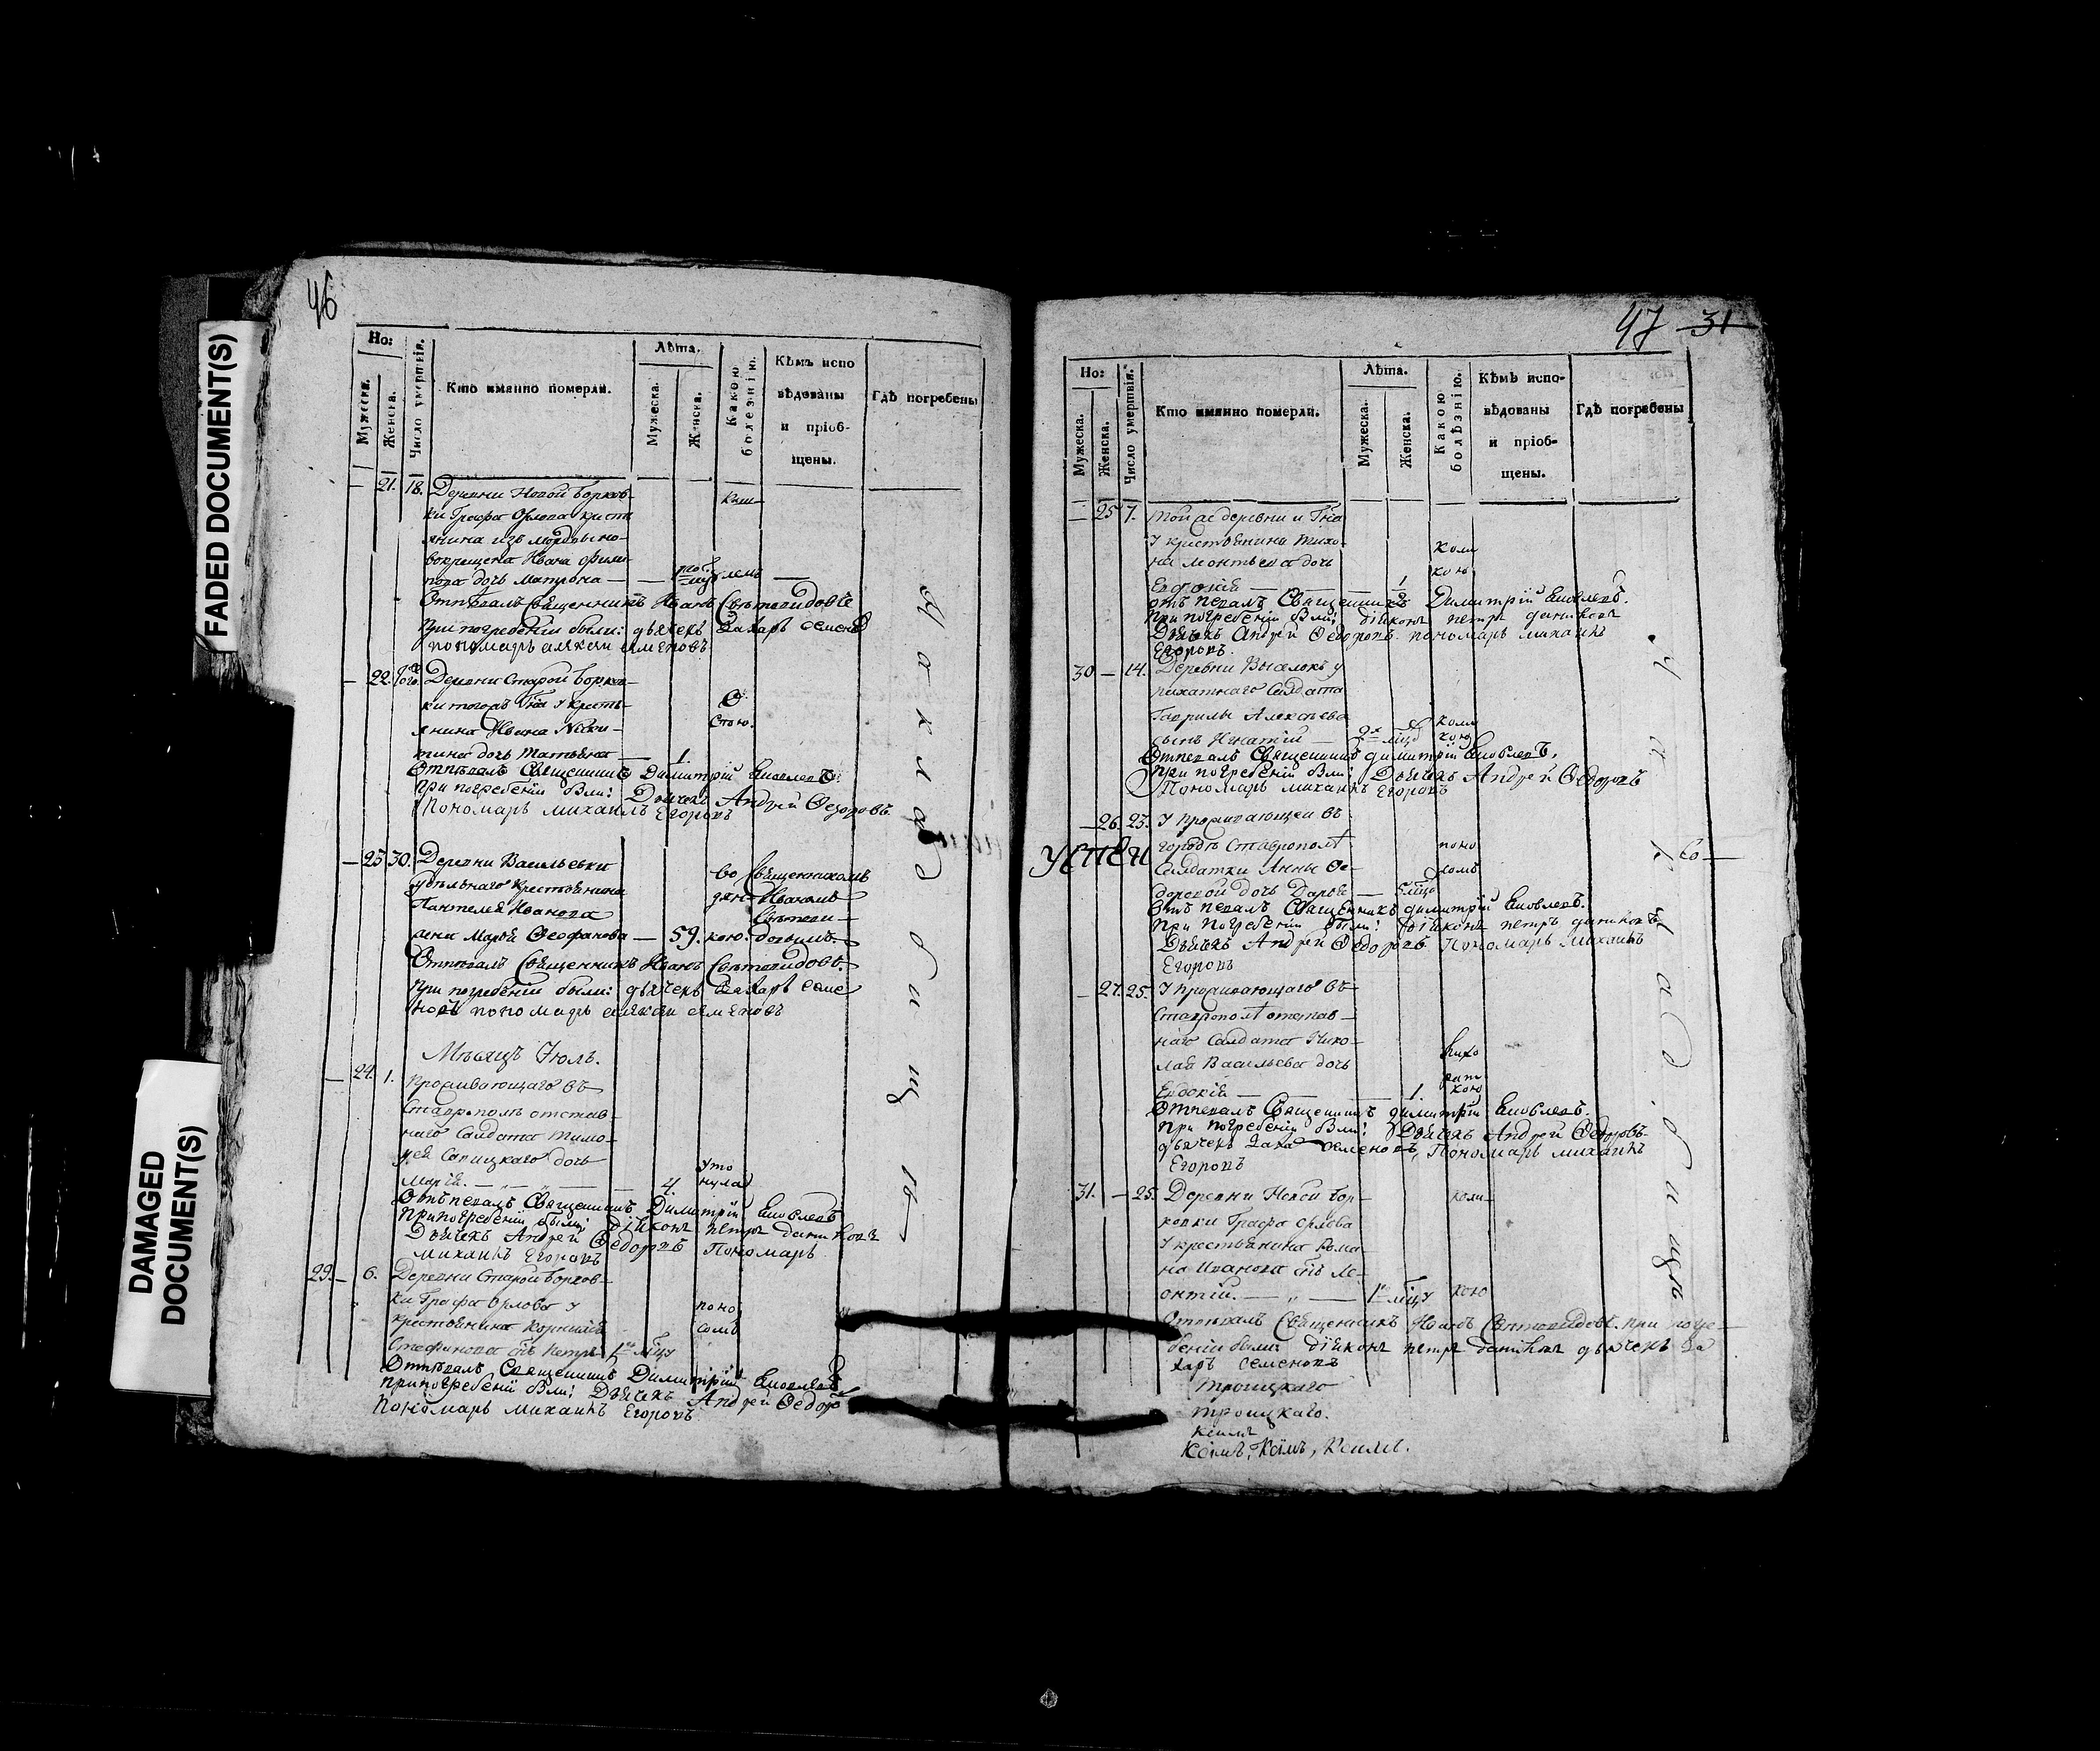 FADED DOCUMENT(S)
DAMAGED
DOCUMENT(S)
46
Но:
Мужеска.
Женска.
Число умертвія.
Кто имянно померли.
Лѣта.
Мужеска.
Женска.
Какою
болезнію.
Кѣмъ испо
вѣдованы
и пріоб-
щены.
Гдѣ погребены
21. 18. Деревни Новой Борков-
ки Графа Орлова кресть
янина изъ мордвы но-
вокрещена Ивана Фили
пова дочь Матрона
Отпѣвалъ Священникъ Иванъ Свѣтовидовъ
При погребеніи были: дьячекъ Захаръ Семено
пономарь Алексѣй Семеновъ
22. Деревни Старой Борков-
ки тогожъ Гна у кресть-
янина Ивана Ники-
тина дочь Татьяна — 1.
Отпѣвалъ Священникъ Димитрій Яковлевъ.
При погребеніи были: Дьячекъ Андрей Федоровъ.
Пономарь Михаилъ Егоровъ
23 30. Деревни Васильевки
удѣльнаго крестьянина
Пантелея Иванова
жена Марья Феофанова — 59. кою. довымъ.
Священникомъ
Иваномъ
Отпѣвалъ Священникъ Иванъ Свѣтовидовъ.
При погребеніи были: дьячекъ Захаръ Семе
новъ пономарь Алексѣй Семеновъ
Мѣсяцъ Іюль.
24. 1. Проживающаго въ
Ставрополѣ отстав-
наго Салдата Тимо-
фея Сапицкаго дочь
Марія. — 4. уто
нула
Отпевалъ Священникъ Димитрій Яковлевъ
При погребеніи были: Діиконъ Петръ Даниковъ
Дьячекъ Андрей Федоровъ Пономарь
Михаилъ Егоровъ
29. 6. Деревни Старой Борков-
ки Графа Орлова у
крестьянина Корнила
Стефанова сынъ Петръ
поно
сомъ
Отпѣвалъ Священникъ Димитрій Яковлевъ
При погребеніи были: Дьячекъ Андрей Федоро
Пономарь Михаилъ Егоровъ
На кладбищѣ
47 31
Но:
Мужеска.
Женска.
Число умертвія.
Кто имянно померли.
Лѣта.
Мужеска.
Женска.
Какою
болѣзнію.
Кѣмъ испо-
вѣдованы
и пріоб-
щены.
Гдѣ погребены
25 7. Той же деревни и Гна
У крестьянина Тихо-
на Монтьева дочь
Евдокія
коли
кою
Отпевалъ Священникъ Димитрій Яковлевъ.
При погребеніи были: Діиконъ Петръ Даниковъ
Дьячекъ Андрей Федоровъ Пономарь Михаилъ
Егоровъ.
30 — 14. Деревни Выселокъ у
пахатнаго Салдата
Гаврилы Алексѣева
сынъ Игнатій
коли
кою
Отпевалъ Священникъ Димитрій Яковлевъ,
При погребеніи были: Дьячекъ Андрей Федоровъ
Пономарь Михаилъ Егоровъ
26. 23. У проживающей въ
городѣ Ставрополѣ
Салдатки Анны Фе-
доровой дочь Дарья
поно
сомъ
УСПЕН
Отпевалъ Священникъ Димитрій Яковлевъ.
При погребеніи были: Діиконъ Петръ Даниковъ
Дьячекъ Андрей Федоровъ Пономарь Михаилъ
Егоровъ
27. 25. У проживающаго въ
Ставрополѣ отстав-
наго Салдата Нико-
лая Васильева дочь
Евдокія — 1.
Отпевалъ Священникъ Димитрій Яковлевъ.
При погребеніи были: Дьячекъ Андрей Федоровъ
дьячекъ Захаръ Семеновъ, Пономарь Михаилъ
Егоровъ
31. — 25. Деревни Новой Бор-
ковки Графа Орлова
У крестьянина Рома
на Иванова сынъ Ле-
онтій.
коли
кою
Отпѣвалъ Священникъ Иванъ Свѣтовидовъ. При погре-
беніи были: Діиконъ Петръ Даниковъ дьячекъ За
харъ Семеновъ
Троицкаго
Троицкаго.
На кладбищѣ